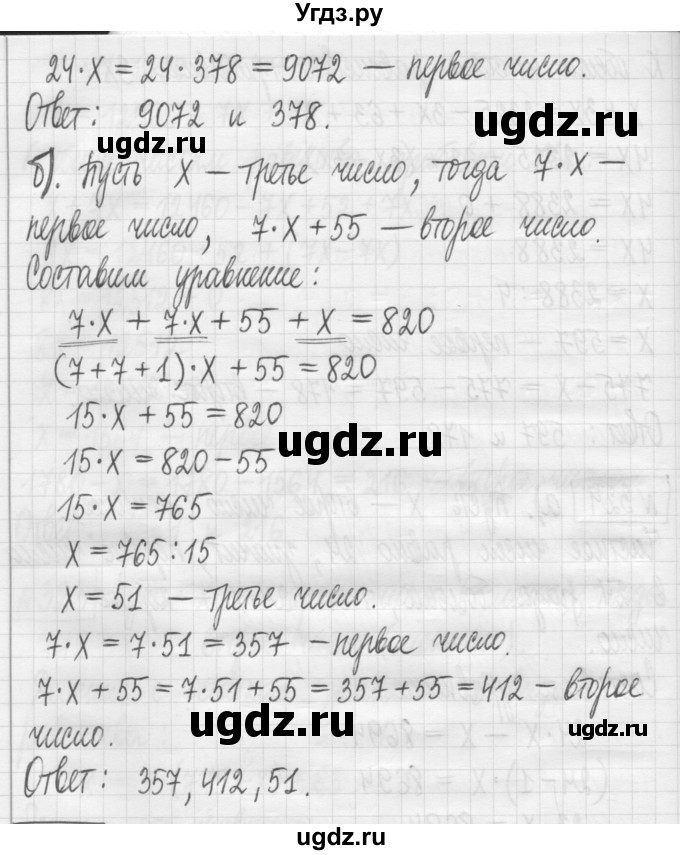 Угдз.ру
24·х = 24·378 = 9072 – первое число.
Ответ: 9072 и 378.
ugdz.ru ugdz.ru
б). Пусть х – третье число, тогда 7·х –
первое число, 7·х + 55 – второе число.
Составим уравнение:
7·х + 7·х + 55 + х = 820
(7+7+1)·х + 55 = 820
15·х + 55 = 820
ugdz.ru
15·х = 820 – 55
15·х = 765
х = 765 : 15
х = 51 – третье число.
7·х = 7·51 = 357 – первое число.
7·х + 55 = 7·51 + 55 = 357 + 55 = 412 – второе
ugdz.ru ugdz.ru
число.
Ответ: 357, 412, 51.
ugdz.ru